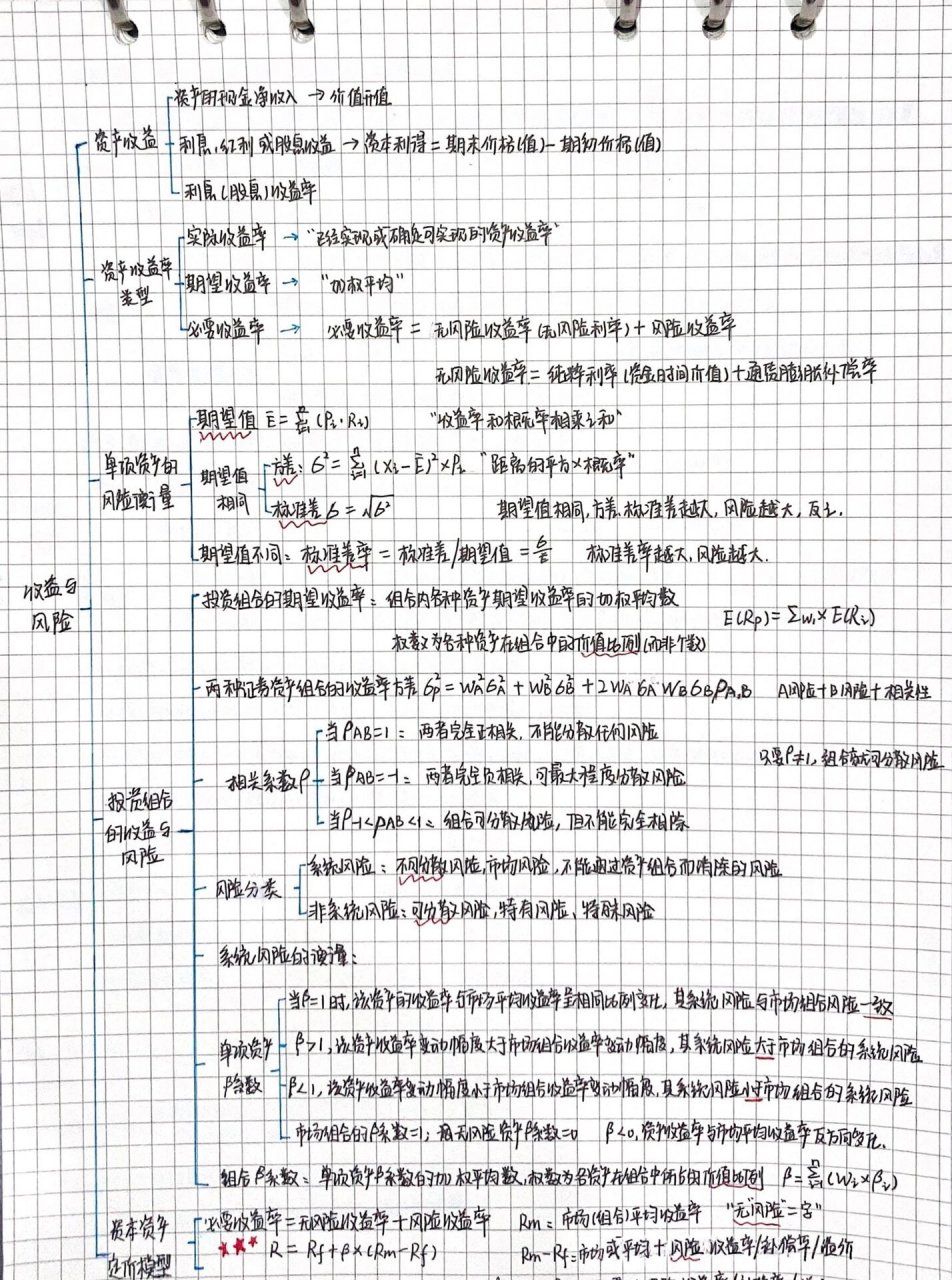 资产的现金净收入 → 价值升值
资产收益
利息、红利或股息收益 → 资本利得 = 期末价格(值) - 期初价格(值)
利息(股息)收益率
实际收益率 → "已经实现或确定可实现的资产收益率"
资产收益率
类型
期望收益率 → "加权平均"
必要收益率 → 必要收益率 = 无风险收益率(无风险利率) + 风险收益率
无风险收益率 = 纯粹利率(资金时间价值) + 通货膨胀补偿率
期望值 E̅ = Σⁿᵢ₌₁ (Pᵢ·Rᵢ) "收益率和概率相乘之和"
单项资产的
风险衡量
期望值
相同
方差: σ² = Σⁿᵢ₌₁ (Xᵢ - E̅)² × Pᵢ "距离的平方×概率"
标准差 σ = √σ² 期望值相同,方差、标准差越大,风险越大,反之.
期望值不同: 标准差率 = 标准差/期望值 = σ/E̅ 标准差率越大,风险越大.
收益与
风险
投资组合的期望收益率: 组合内各种资产期望收益率的加权平均数
E(Rp) = Σwᵢ × E(Rᵢ)
权数为各种资产在组合中的价值比例(而非个数)
两种证券资产组合的收益率方差 σp² = WA²σA² + WB²σB² + 2WAσAWBσBρA,B A风险+B风险+相关性
当ρAB=1: 两者完全正相关,不能分散任何风险
只要ρ≠1,组合就可分散风险
相关系数ρ
当ρAB=-1: 两者完全负相关,可最大程度分散风险
当ρ-1<ρAB<1: 组合可分散风险,但不能完全相除
投资组合
的收益与
风险
风险分类
系统风险: 不可分散风险,市场风险,不能通过资产组合而消除的风险
非系统风险: 可分散风险,特有风险、特殊风险
系统风险的衡量:
单项资产
β系数
当β=1时,该资产的收益率与市场平均收益率呈相同比例变化,其系统风险与市场组合风险一致
β>1,该资产收益率变动幅度大于市场组合收益率变动幅度,其系统风险大于市场组合的系统风险
β<1,该资产收益率变动幅度小于市场组合收益率变动幅度,其系统风险小于市场组合的系统风险
市场组合的β系数=1; 无风险资产β系数=0 β<0,资产收益率与市场平均收益率反方向变化.
组合β系数: 单项资产β系数的加权平均数,权数为各资产在组合中所占的价值比例 β = Σⁿᵢ₌₁ (Wᵢ×βᵢ)
资本资产
定价模型
必要收益率 = 无风险收益率 + 风险收益率 Rm = 市场(组合)平均收益率 "无'风险'二字"
★★★ R = Rf + β × (Rm - Rf) Rm - Rf = 市场或平均 + 风险 收益率/补偿率/溢价